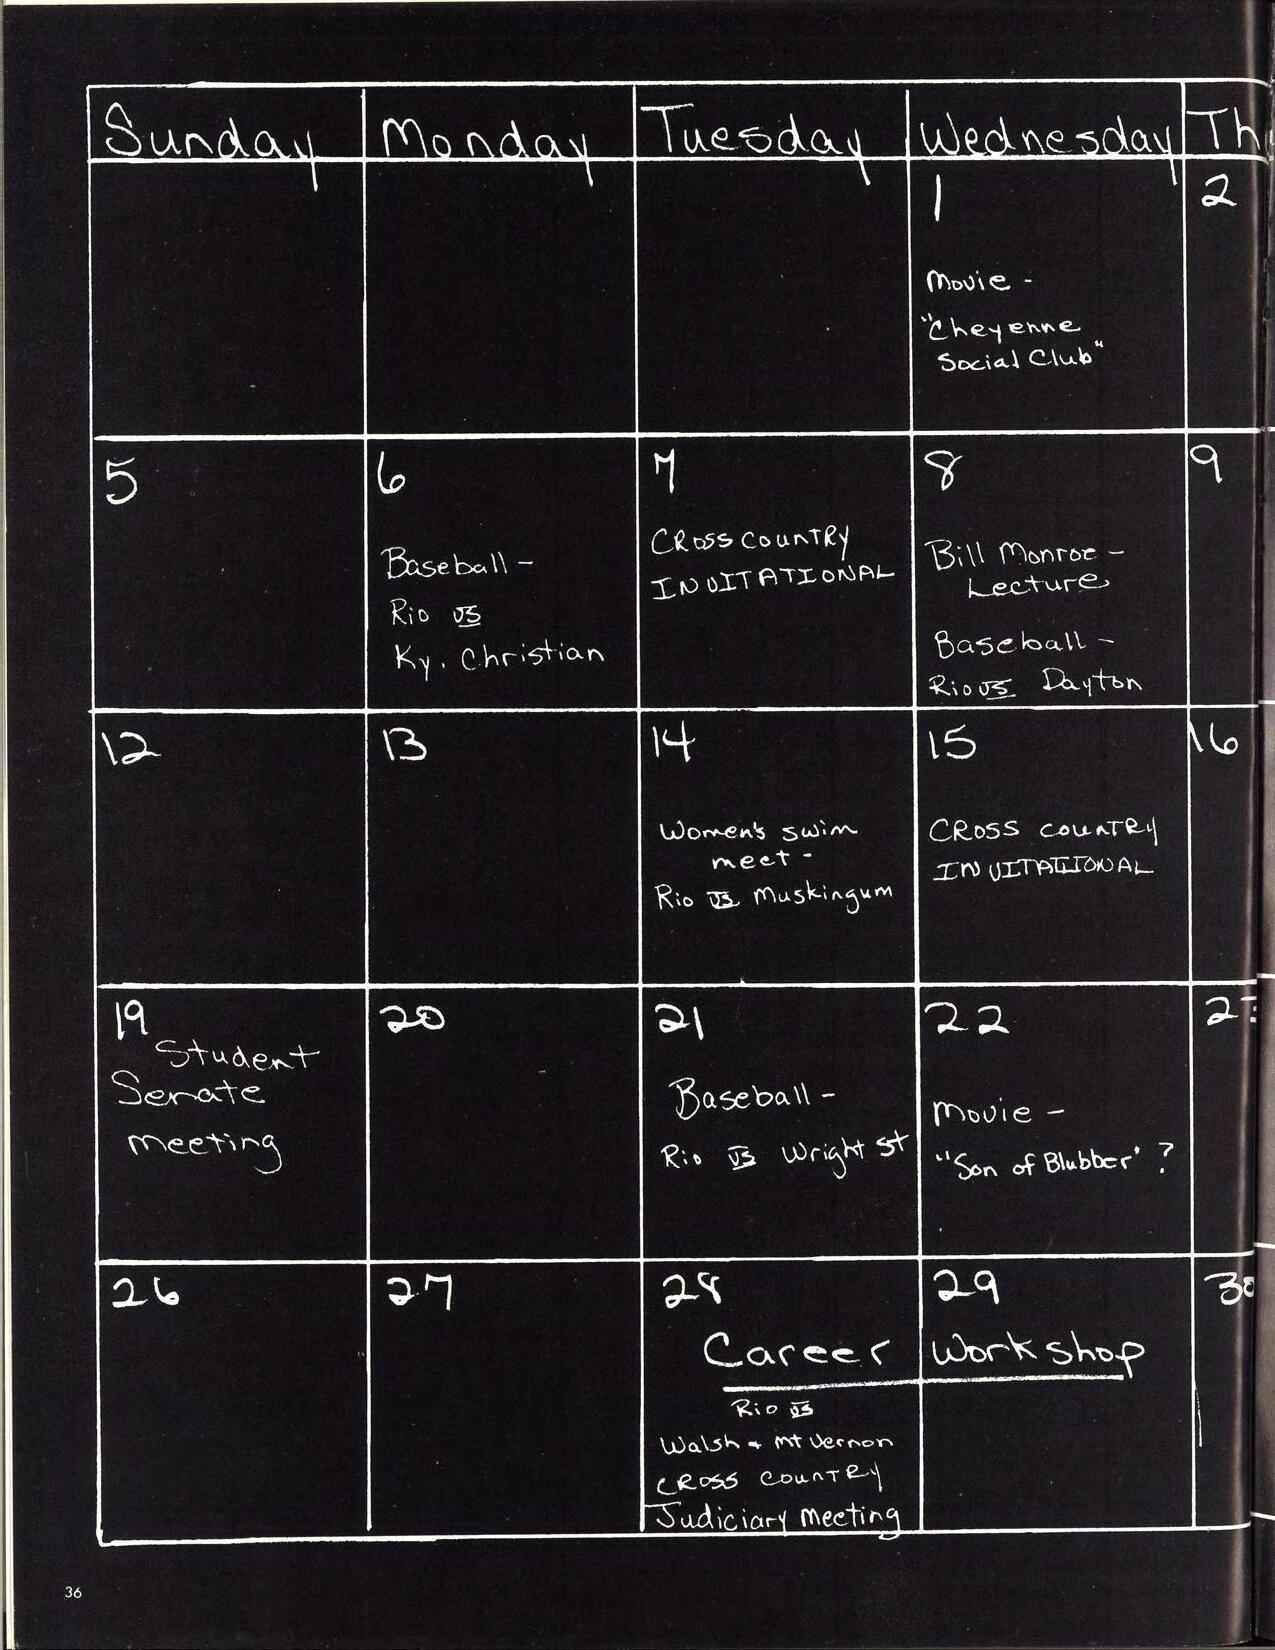 Sunday Monday Tuesday Wednesday Th
1 2
Movie -
"Cheyenne
Social Club"
5 6 7 8 9
Baseball -
Rio vs
Ky. Christian
CROSS COUNTRY
INVITATIONAL
Bill Monroe -
Lecture
Baseball -
Rio vs Dayton
12 13 14 15 16
Women's swim
meet -
Rio vs Muskingum
CROSS COUNTRY
INVITATIONAL
19 20 21 22 23
Student
Senate
meeting
Baseball -
Rio vs Wright St
Movie -
"Son of Blubber" ?
26 27 28 29 30
Career Workshop
Rio vs
Walsh + Mt Vernon
CROSS COUNTRY
Judiciary Meeting
36